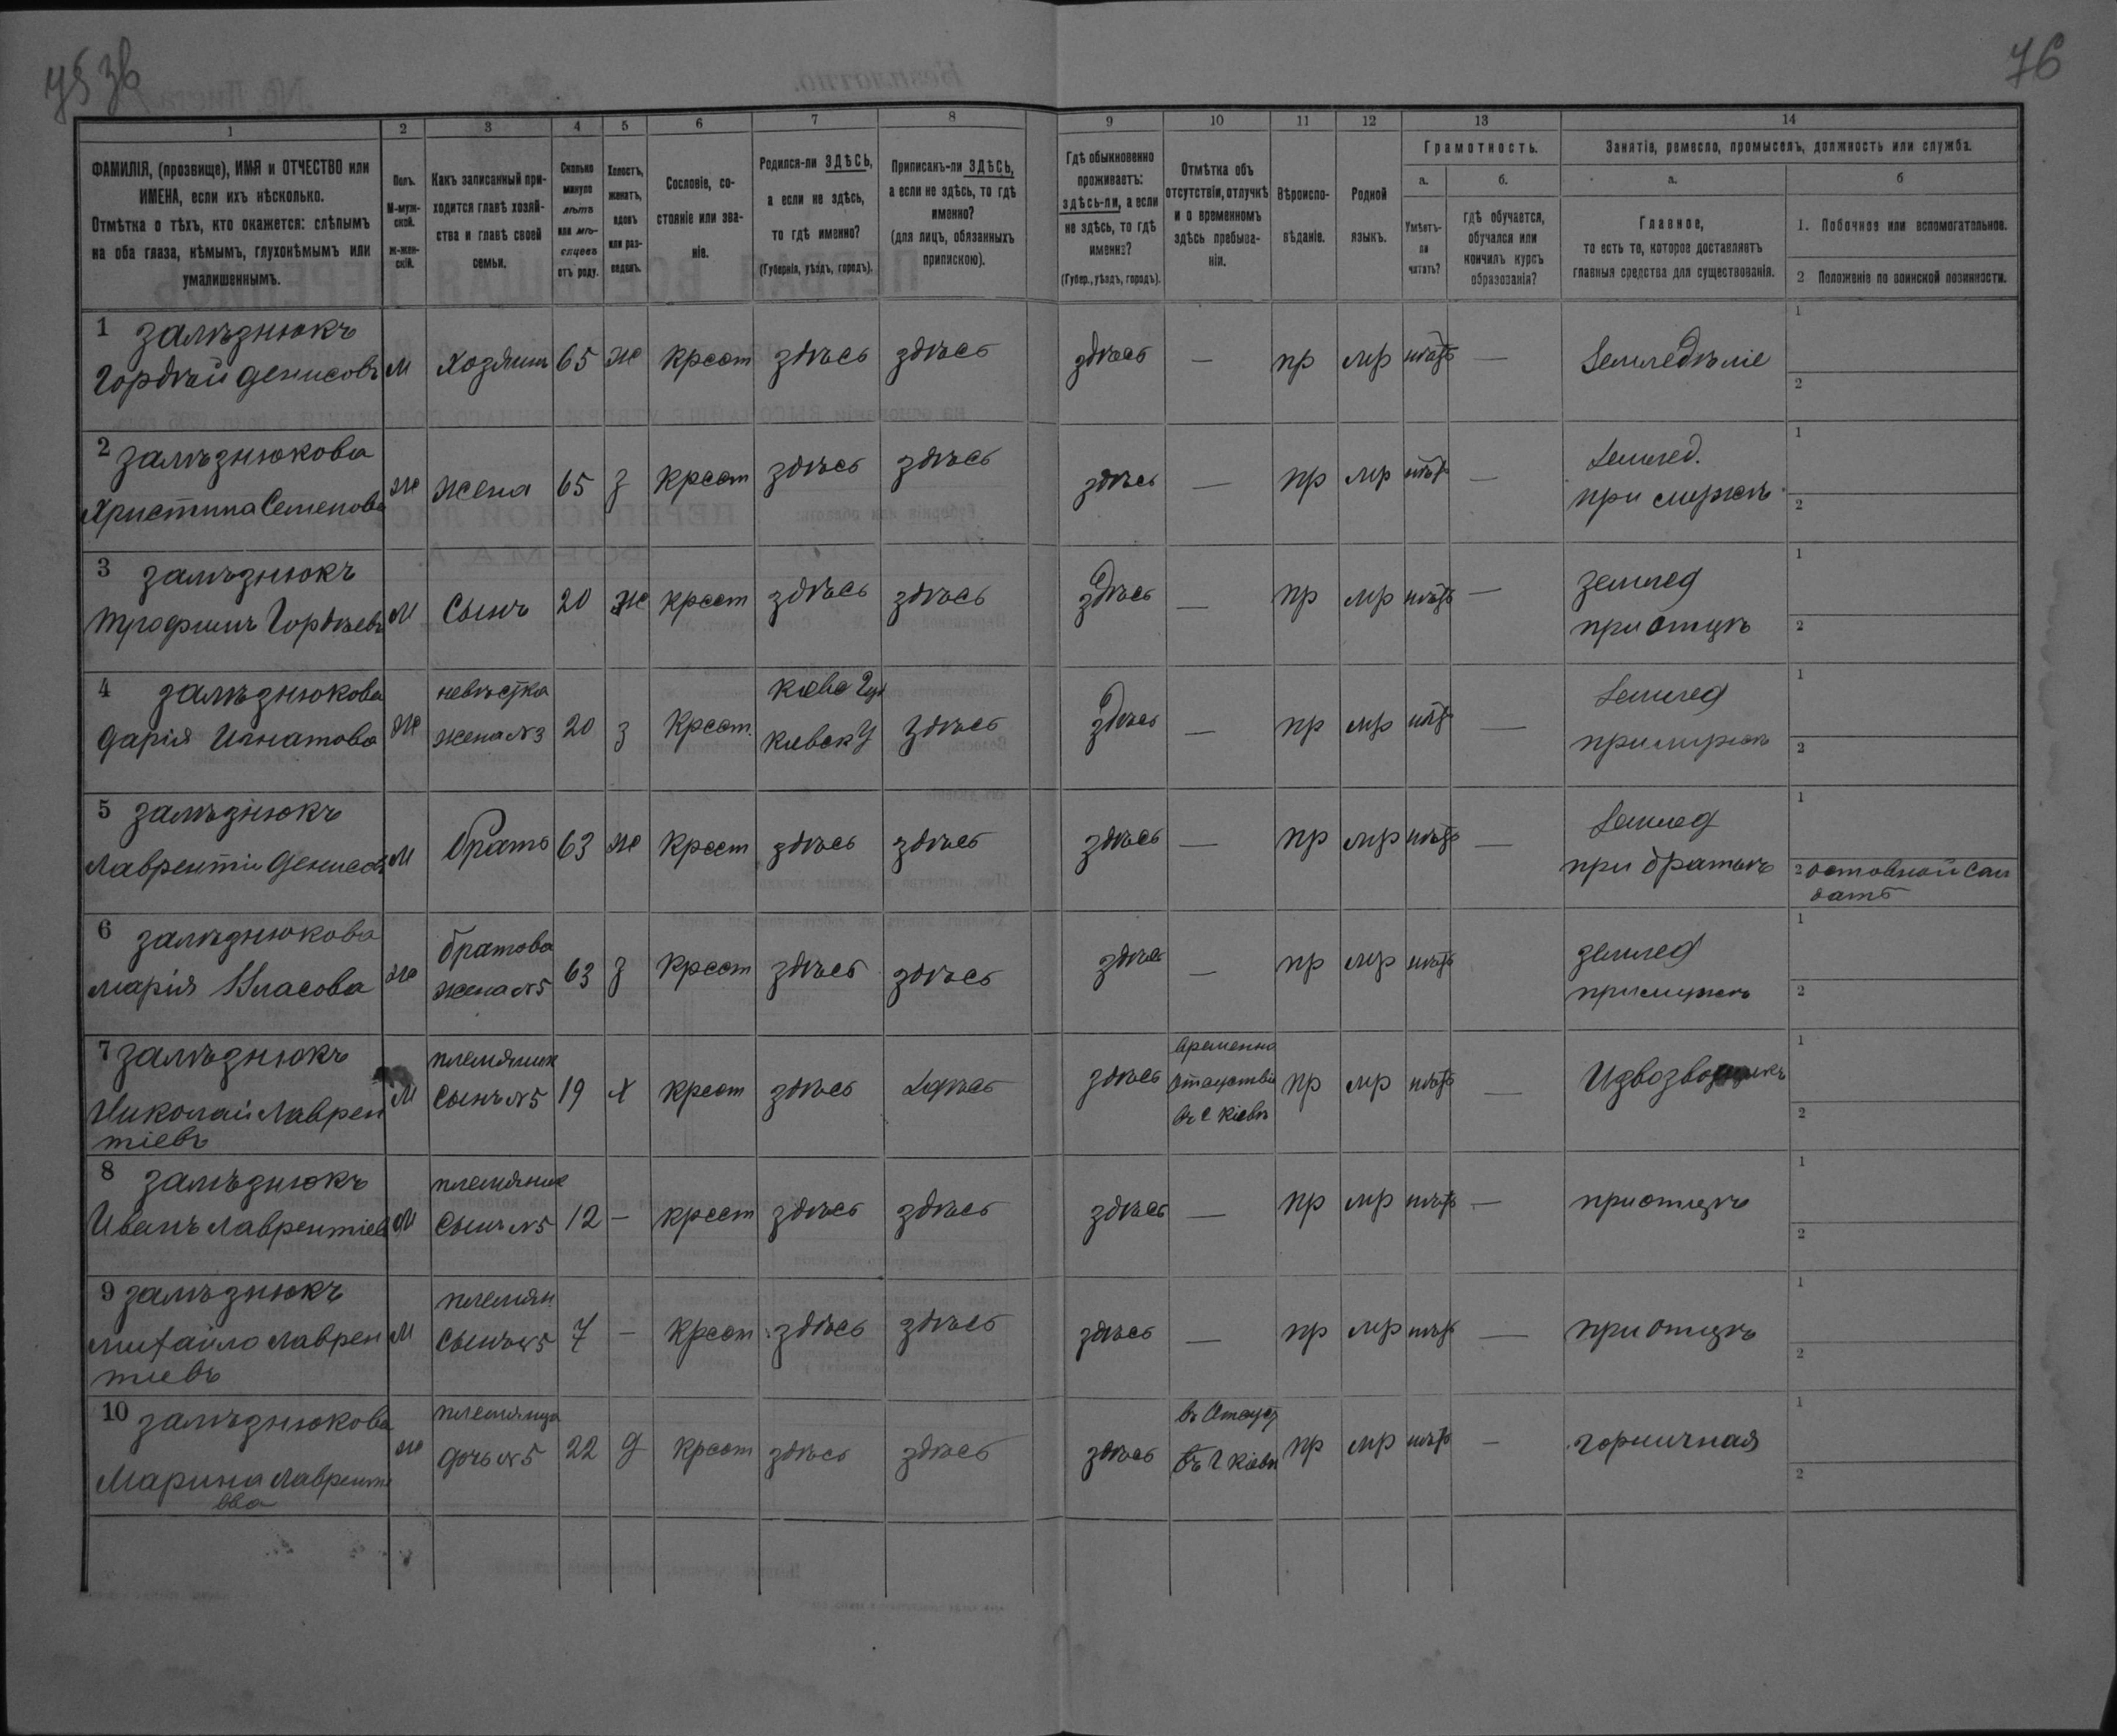 76
1 2 3 4 5 6 7 8 9 10 11 12 13 14
ФАМИЛІЯ, (прозвище), ИМЯ и ОТЧЕСТВО или
ИМЕНА, если ихъ нѣсколько.
Отмѣтка о тѣхъ, кто окажется: слѣпымъ
на оба глаза, нѣмымъ, глухонѣмымъ или
умалишеннымъ.
Полъ.
М-муж-
ской.
ж-жен-
скій.
Какъ записанный при-
ходится главѣ хозяй-
ства и главѣ своей
семьи.
Сколько
минуло
лѣтъ
или мѣ-
сяцевъ
отъ роду.
Холостъ,
женатъ,
вдовъ
или раз-
веденъ.
Сословіе, со-
стояніе или зва-
ніе.
Родился-ли ЗДѢСЬ,
а если не здѣсь,
то гдѣ именно?
(Губернія, уѣздъ, городъ).
Приписанъ-ли ЗДѢСЬ,
а если не здѣсь, то гдѣ
именно?
(для лицъ, обязанныхъ
припискою).
Гдѣ обыкновенно
проживаетъ:
здѣсь-ли, а если
не здѣсь, то гдѣ
именно?
(Губер., уѣздъ, городъ).
Отмѣтка объ
отсутствіи, отлучкѣ
и о временномъ
здѣсь пребыва-
ніи.
Вѣроиспо-
вѣданіе.
Родной
языкъ.
Грамотность.
а.
Умѣетъ-
ли
читать?
б.
гдѣ обучается,
обучался или
кончилъ курсъ
образованія?
Занятіе, ремесло, промыселъ, должность или служба.
а.
Главное,
то есть то, которое доставляетъ
главныя средства для существованія.
б
1. Побочное или вспомогательное.
2 Положеніе по воинской повинности.
1 залѣзнюкъ
Гордѣй Денисовъ м Хозяинъ 65 ж крест здѣсь здѣсь здѣсь — пр мр нѣтъ — Земледѣліе
1
2
2 залѣзнюкова
Христина Семенова ж жена 65 з крест здѣсь здѣсь здѣсь — пр мр нѣтъ — Землед.
при мужѣ
1
2
3 залѣзнюкъ
Трофимъ Гордѣевъ м Сынъ 20 ж крест здѣсь здѣсь здѣсь — пр мр нѣтъ — землед
при отцѣ
1
2
4 залѣзнюкова
Дарія Игнатова ж невѣстка
жена №3 20 з Крест. Киевс Гу
Киевск У здѣсь здѣсь — пр мр нѣтъ — Землед
при мужѣ
1
2
5 залѣзнюкъ
Лаврентій Денисов м братъ 63 ж крест здѣсь здѣсь здѣсь — пр мр нѣтъ — Землед
при братѣ
1
2
6 залѣзнюкова
марія Власова ж братова
жена №5 63 з крест здѣсь здѣсь здѣсь — пр мр нѣтъ землед
при мужѣ
1
2
7 залѣзнюкъ
Николай Лаврен
тіевъ м племянник
Сынъ №5 19 х крест здѣсь здѣсь здѣсь временно
отсуствіи
въ Г Кіевѣ пр мр нѣтъ — Извозвощикъ
1
2
8 залѣзнюкъ
Иванъ Лаврентіев м племяник
Сынъ №5 12 — крест здѣсь здѣсь здѣсь — пр мр нѣтъ — при отцѣ
1
2
9 залѣзнюкъ
михайло Лаврен
тиевъ м племян
Сынъ №5 7 — крест здѣсь здѣсь здѣсь — пр мр нѣтъ — при отцѣ
1
2
10 залѣзнюкова
Марина Лаврентие
вва ж племяница
дочь №5 22 д крест здѣсь здѣсь здѣсь въ Отсуст
въ Г Кіевѣ пр мр нѣтъ — горничная
1
2